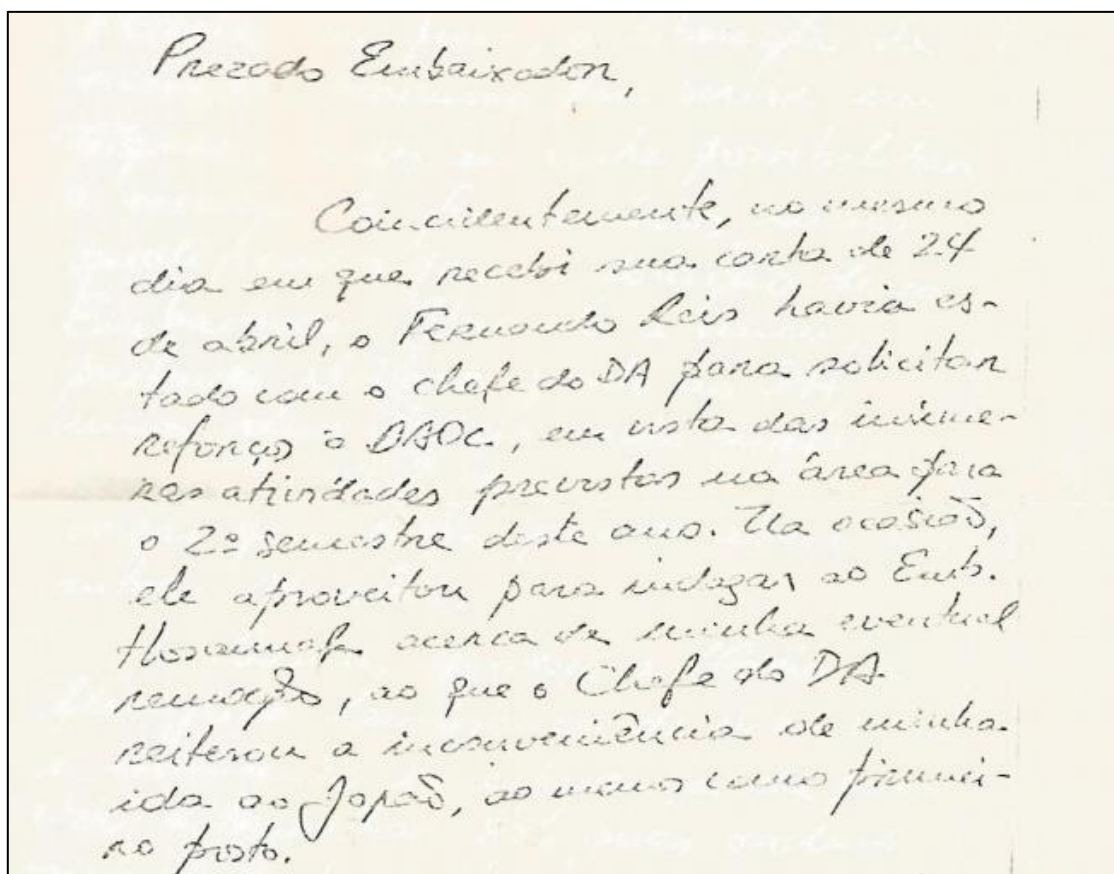 Prezado Embaixador,
Coincidentemente, no mesmo
dia em que recebi sua carta de 24
de abril, o Fernando Reis havia es-
tado com o chefe do DA para solicitar
reforço à DAOC, em vista das inúme-
ras atividades previstas na área para
o 2º semestre deste ano. Na ocasião,
ele aproveitou para indagar ao Emb.
acerca de minha eventual
remoção, ao que o Chefe do DA
reiterou a inconveniência de minha
ida ao Japão, ao menos como primei-
ro posto.